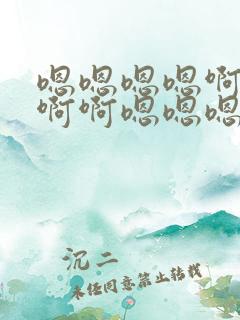 嗯嗯嗯嗯啊
啊啊嗯嗯嗯
沉二
未经同意禁止转载